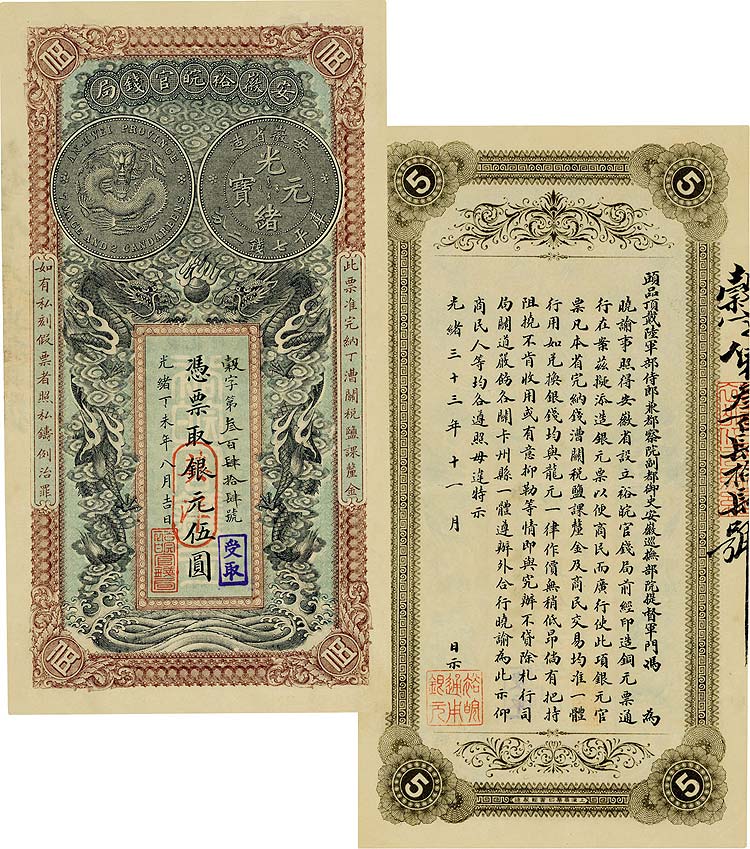 安徽裕皖官錢局
AN-HWEI PROVINCE
SEVEN MACE AND 2 CANDAREENS
安徽省造
光緒元寶
庫平七錢二分
此票准完納丁漕關稅鹽課釐金
如有私刻假票者照私鑄例治罪
穀字第叁百肆拾肆號
憑票取銀元伍圓
光緒丁未年八月吉日
受取
伍
伍
伍
伍
5
5
頭品頂戴陸軍部侍郎兼都察院副都御史安徽巡撫部院提督軍門馮 為
曉諭事照得安徽省設立裕皖官錢局前經印造銅元票通
行在案茲擬添造銀元票以便商民而廣行使此項銀元官
票凡本省完納錢漕關稅鹽課釐金及商民交易均准一體
行用如兌換銀錢均與龍元一律作價無稍低昂倘有把持
阻撓不肯收用或有意抑勒等情即與究辦不貸除札行司
局關道嚴飭各關卡州縣一體遵辦外合行曉諭為此示仰
商民人等均各遵照毋違特示
光緒三十三年十一月 日示
裕皖
通本
銀元
5
5